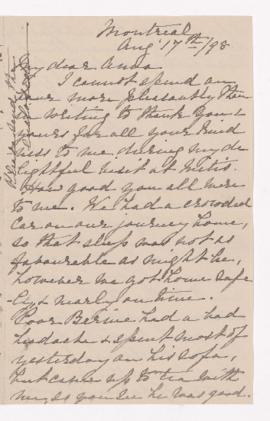 Montreal
Aug' 17th/98
My dear Anna
I cannot spend an
hour more pleasantly than
in writing to thank you &
yours for all your kind
ness to me during my de
lightful visit at Metis.
How good you all were
to me. We had a crowded
car on our journey home,
so that sleep was not as
favourable as might be,
however we got home safe
-ly & nearly on time.
Poor Bernie had a bad
headache & spent most of
yesterday on his sofa,
but came up to tea with
me, so you see he was good.
Please send the